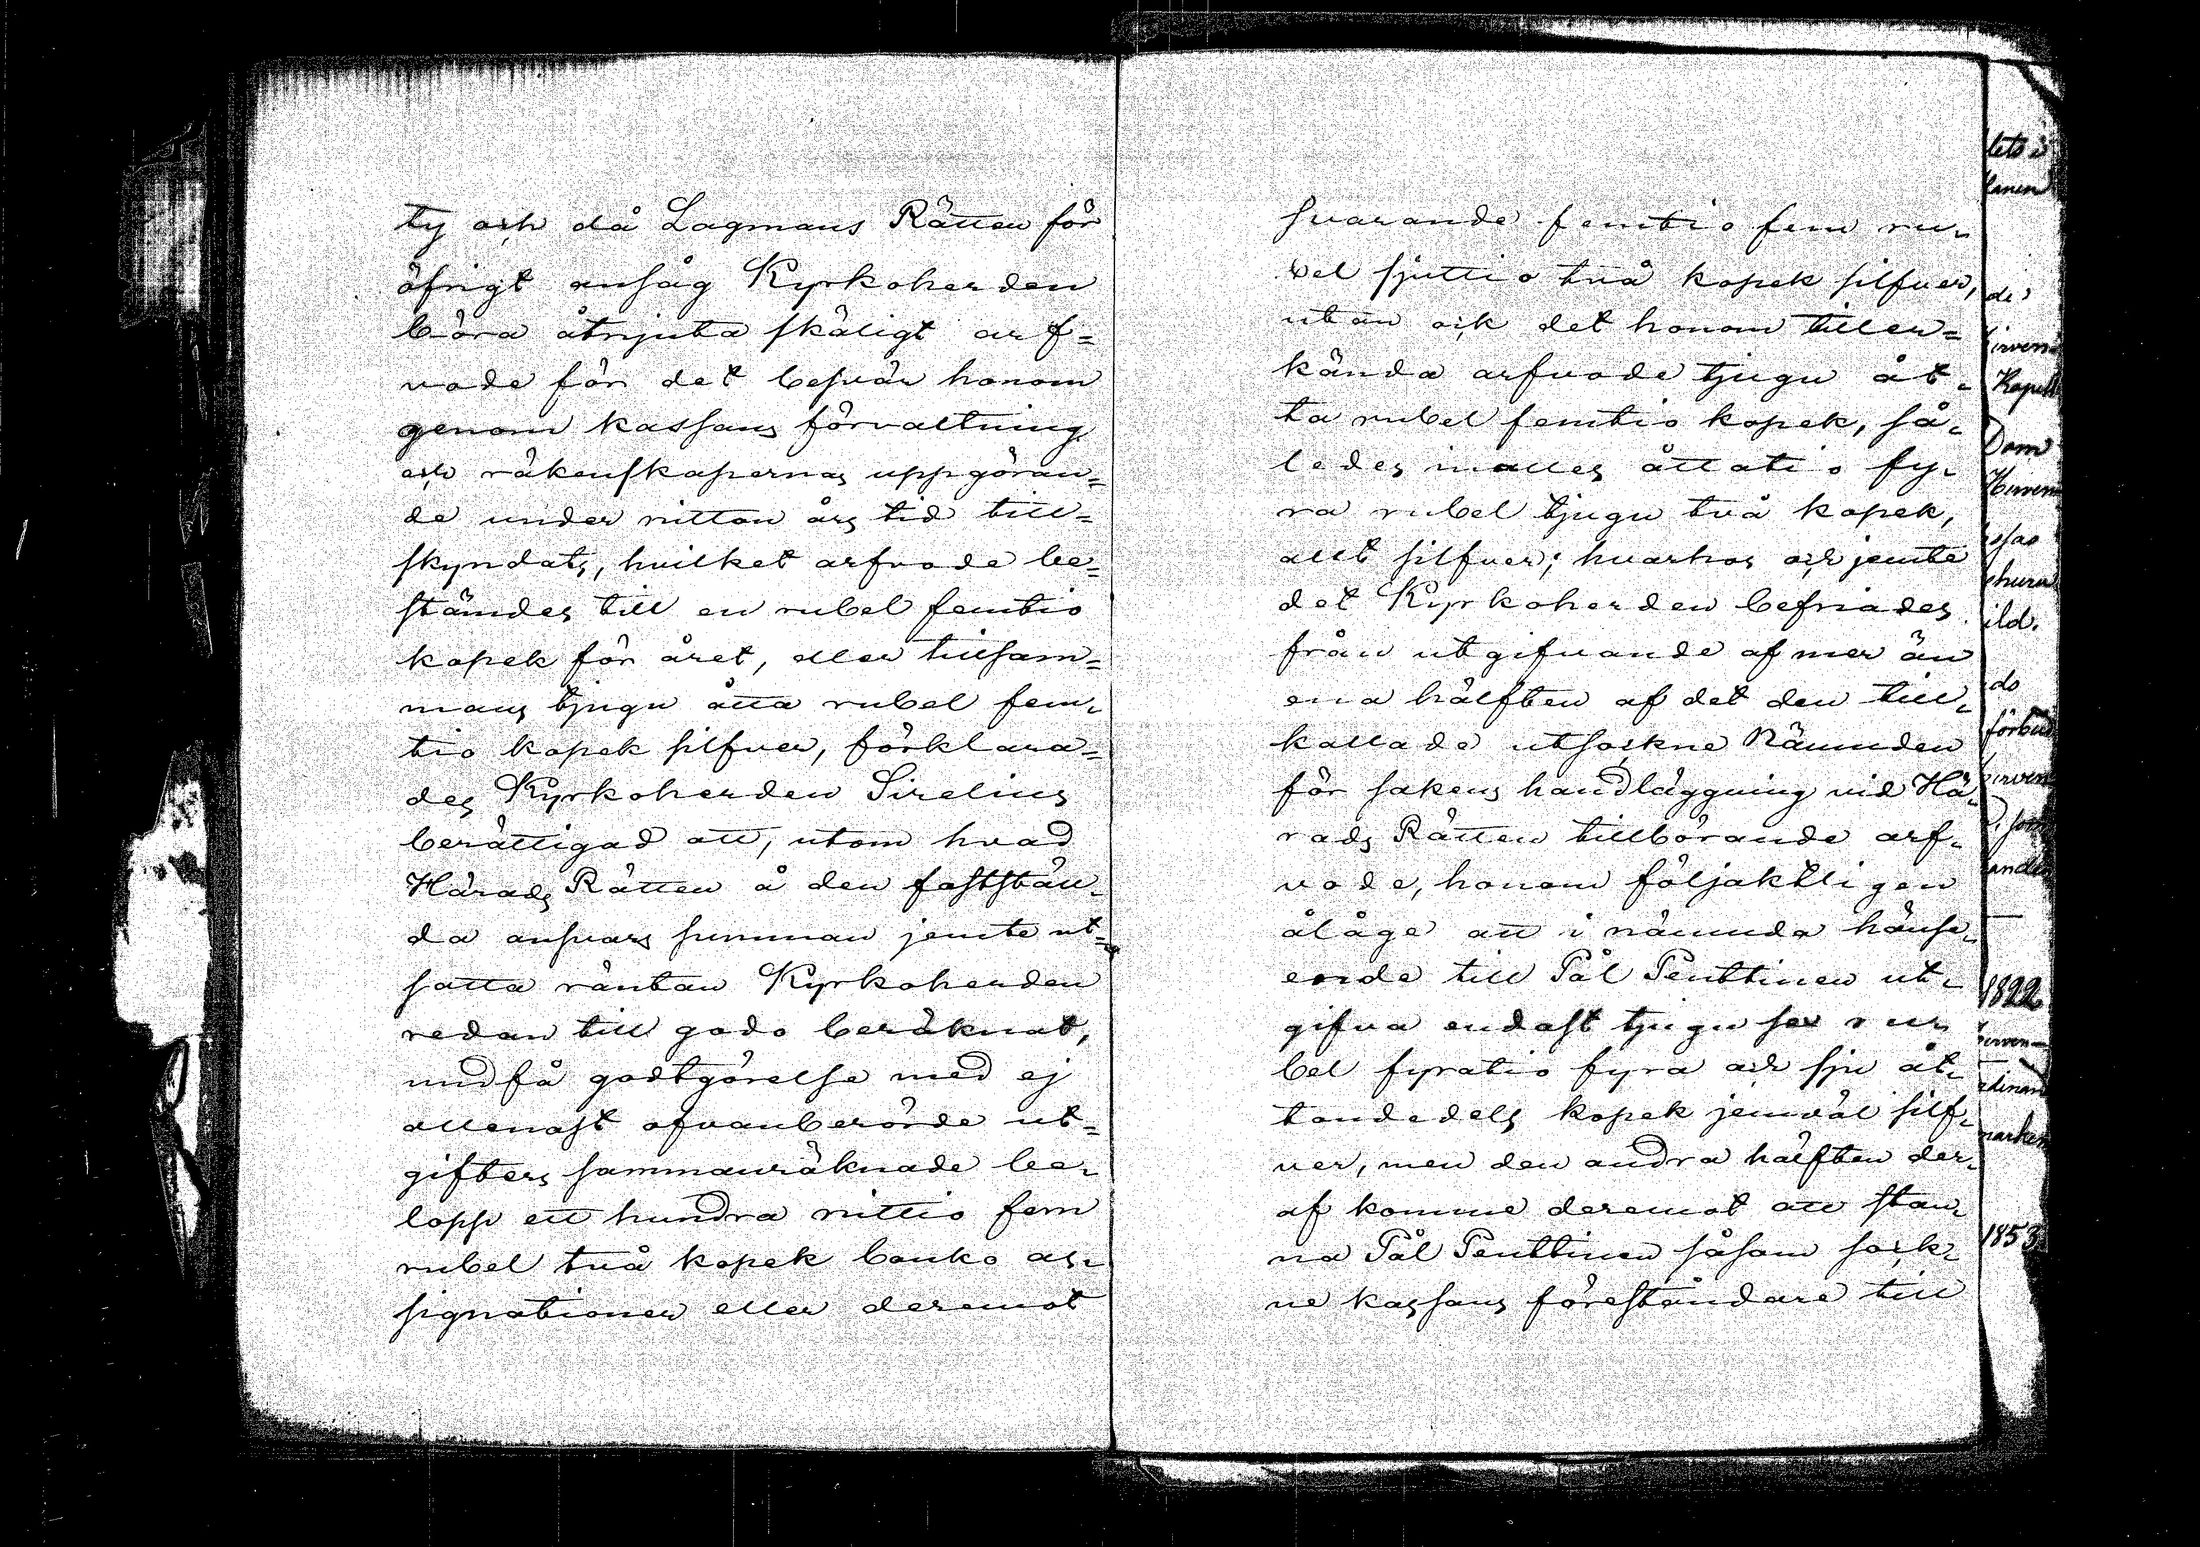 ty och då Lagmans Rätten för
öfrigt ansåg Kyrkoherden
böra åtnjuta skäligt arf=
vode för det besvär honom
genom kassans förvaltning
och räkenskapernas uppgöran=
de under nitton års tid till=
skyndats, hvilket arfvode be=
stämdes till en rubel femtio
kopek för året, eller tillsam=
mans tjugu åtta rubel fem-
tio kopek silfver, förklara=
des Kyrkoherden Sirelius
berättigad att, utom hvad
Härads Rätten å den fastställ-
da ansvars summan jemte ut=
satta räntan Kyrkoherden
redan till godo beräknat,
undfå godtgörelse med ej
allenast ofvanberörde ut=
gifters sammanräknade be-
lopp ett hundra nittio fem
rubel två kopek banko as-
signationer eller deremot
svarande femtio fem ru-
bel sjuttio två kopek silfver,
utan ock det honom tiller=
kända arfvode tjugu åt-
ta rubel femtio kopek, så-
ledes inalles åttatio fy-
ra rubel tjugu två kopek,
allt silfver; hvarhos och jemte
det Kyrkoherden befriades
från utgifvande af mer än
ena hälften af det den till-
kallade utsockne Nämnden
för sakens handläggning vid Hä-
rads Rätten tillbörande arf-
vode, honom följaktligen
ålåge att i nämnda hänse-
ende till Pål Penttinen ut-
gifva endast tjugu sex ru-
bel fyratio fyra och sju åt-
tondedels kopek jemväl silf-
ver, men den andra hälften der-
af komme deremot att stan-
na Pål Penttinen såsom sock-
ne kassans föreståndare till
Dom
ild.
1822
1853